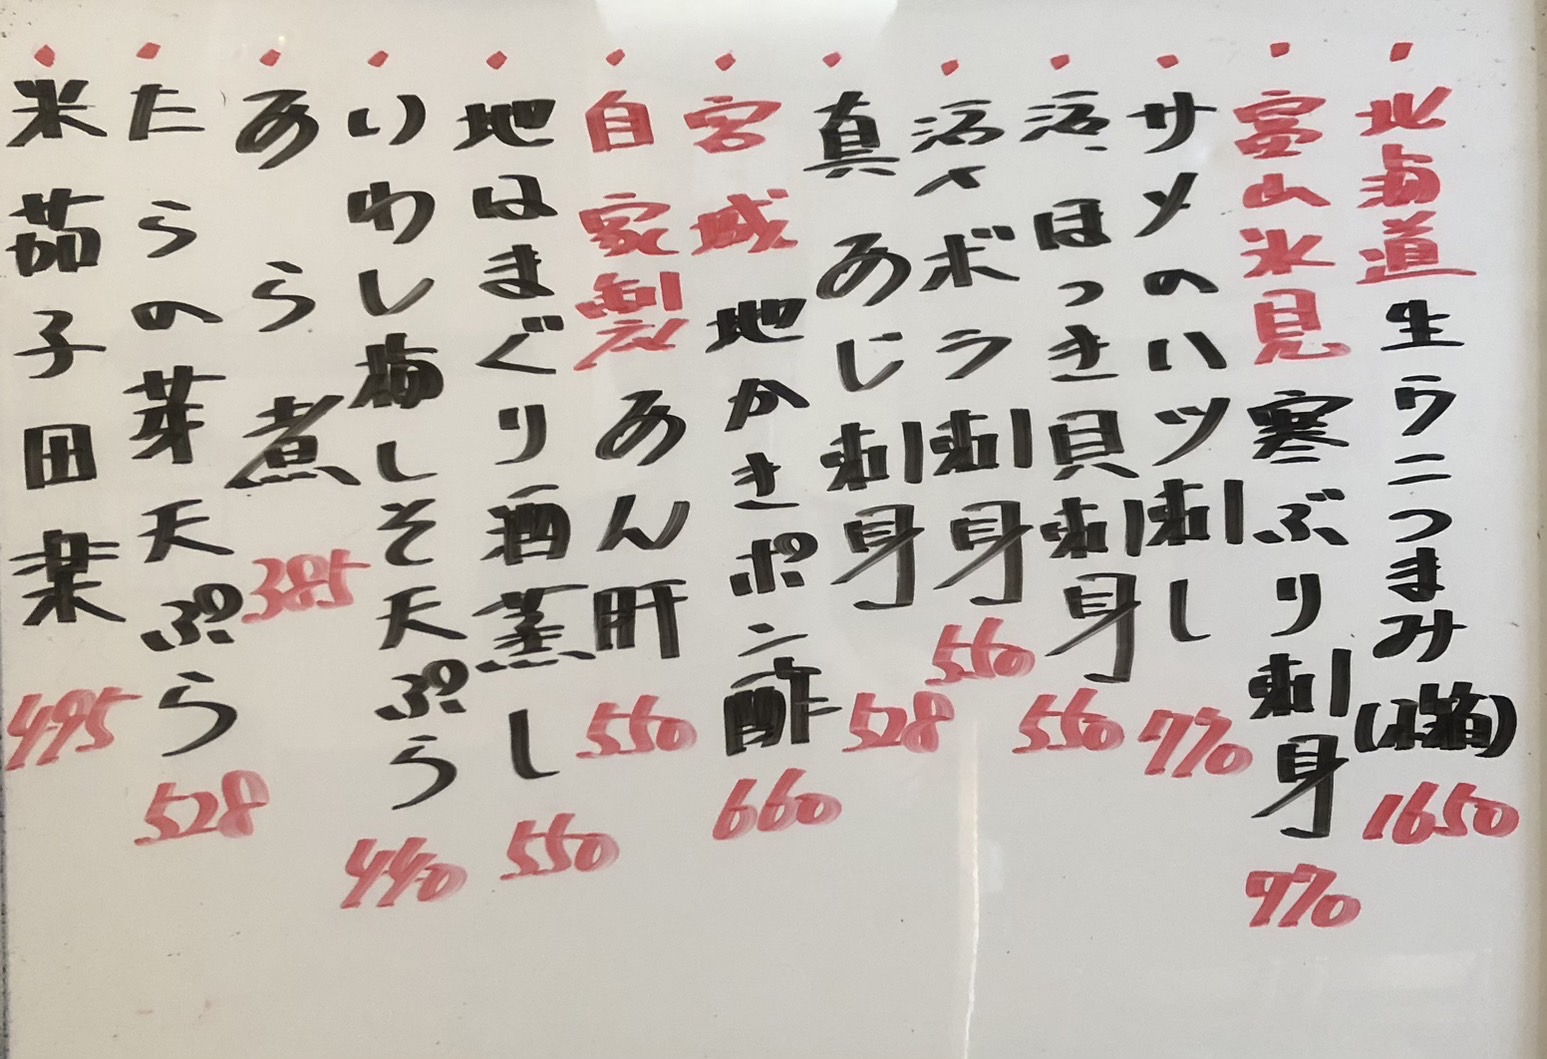 北海道 生ウニつまみ(小箱) 1650
富山氷見 寒ぶり刺身 770
サメのハツ刺し 770
活、ほっき貝刺身 550
活〆ボラ刺身 550
真あじ刺身 528
宮城 地かきポン酢 660
自家製 あん肝 550
地はまぐり酒蒸し 550
いわし梅しそ天ぷら 440
あら煮 385
たらの芽天ぷら 528
米茄子田楽 495